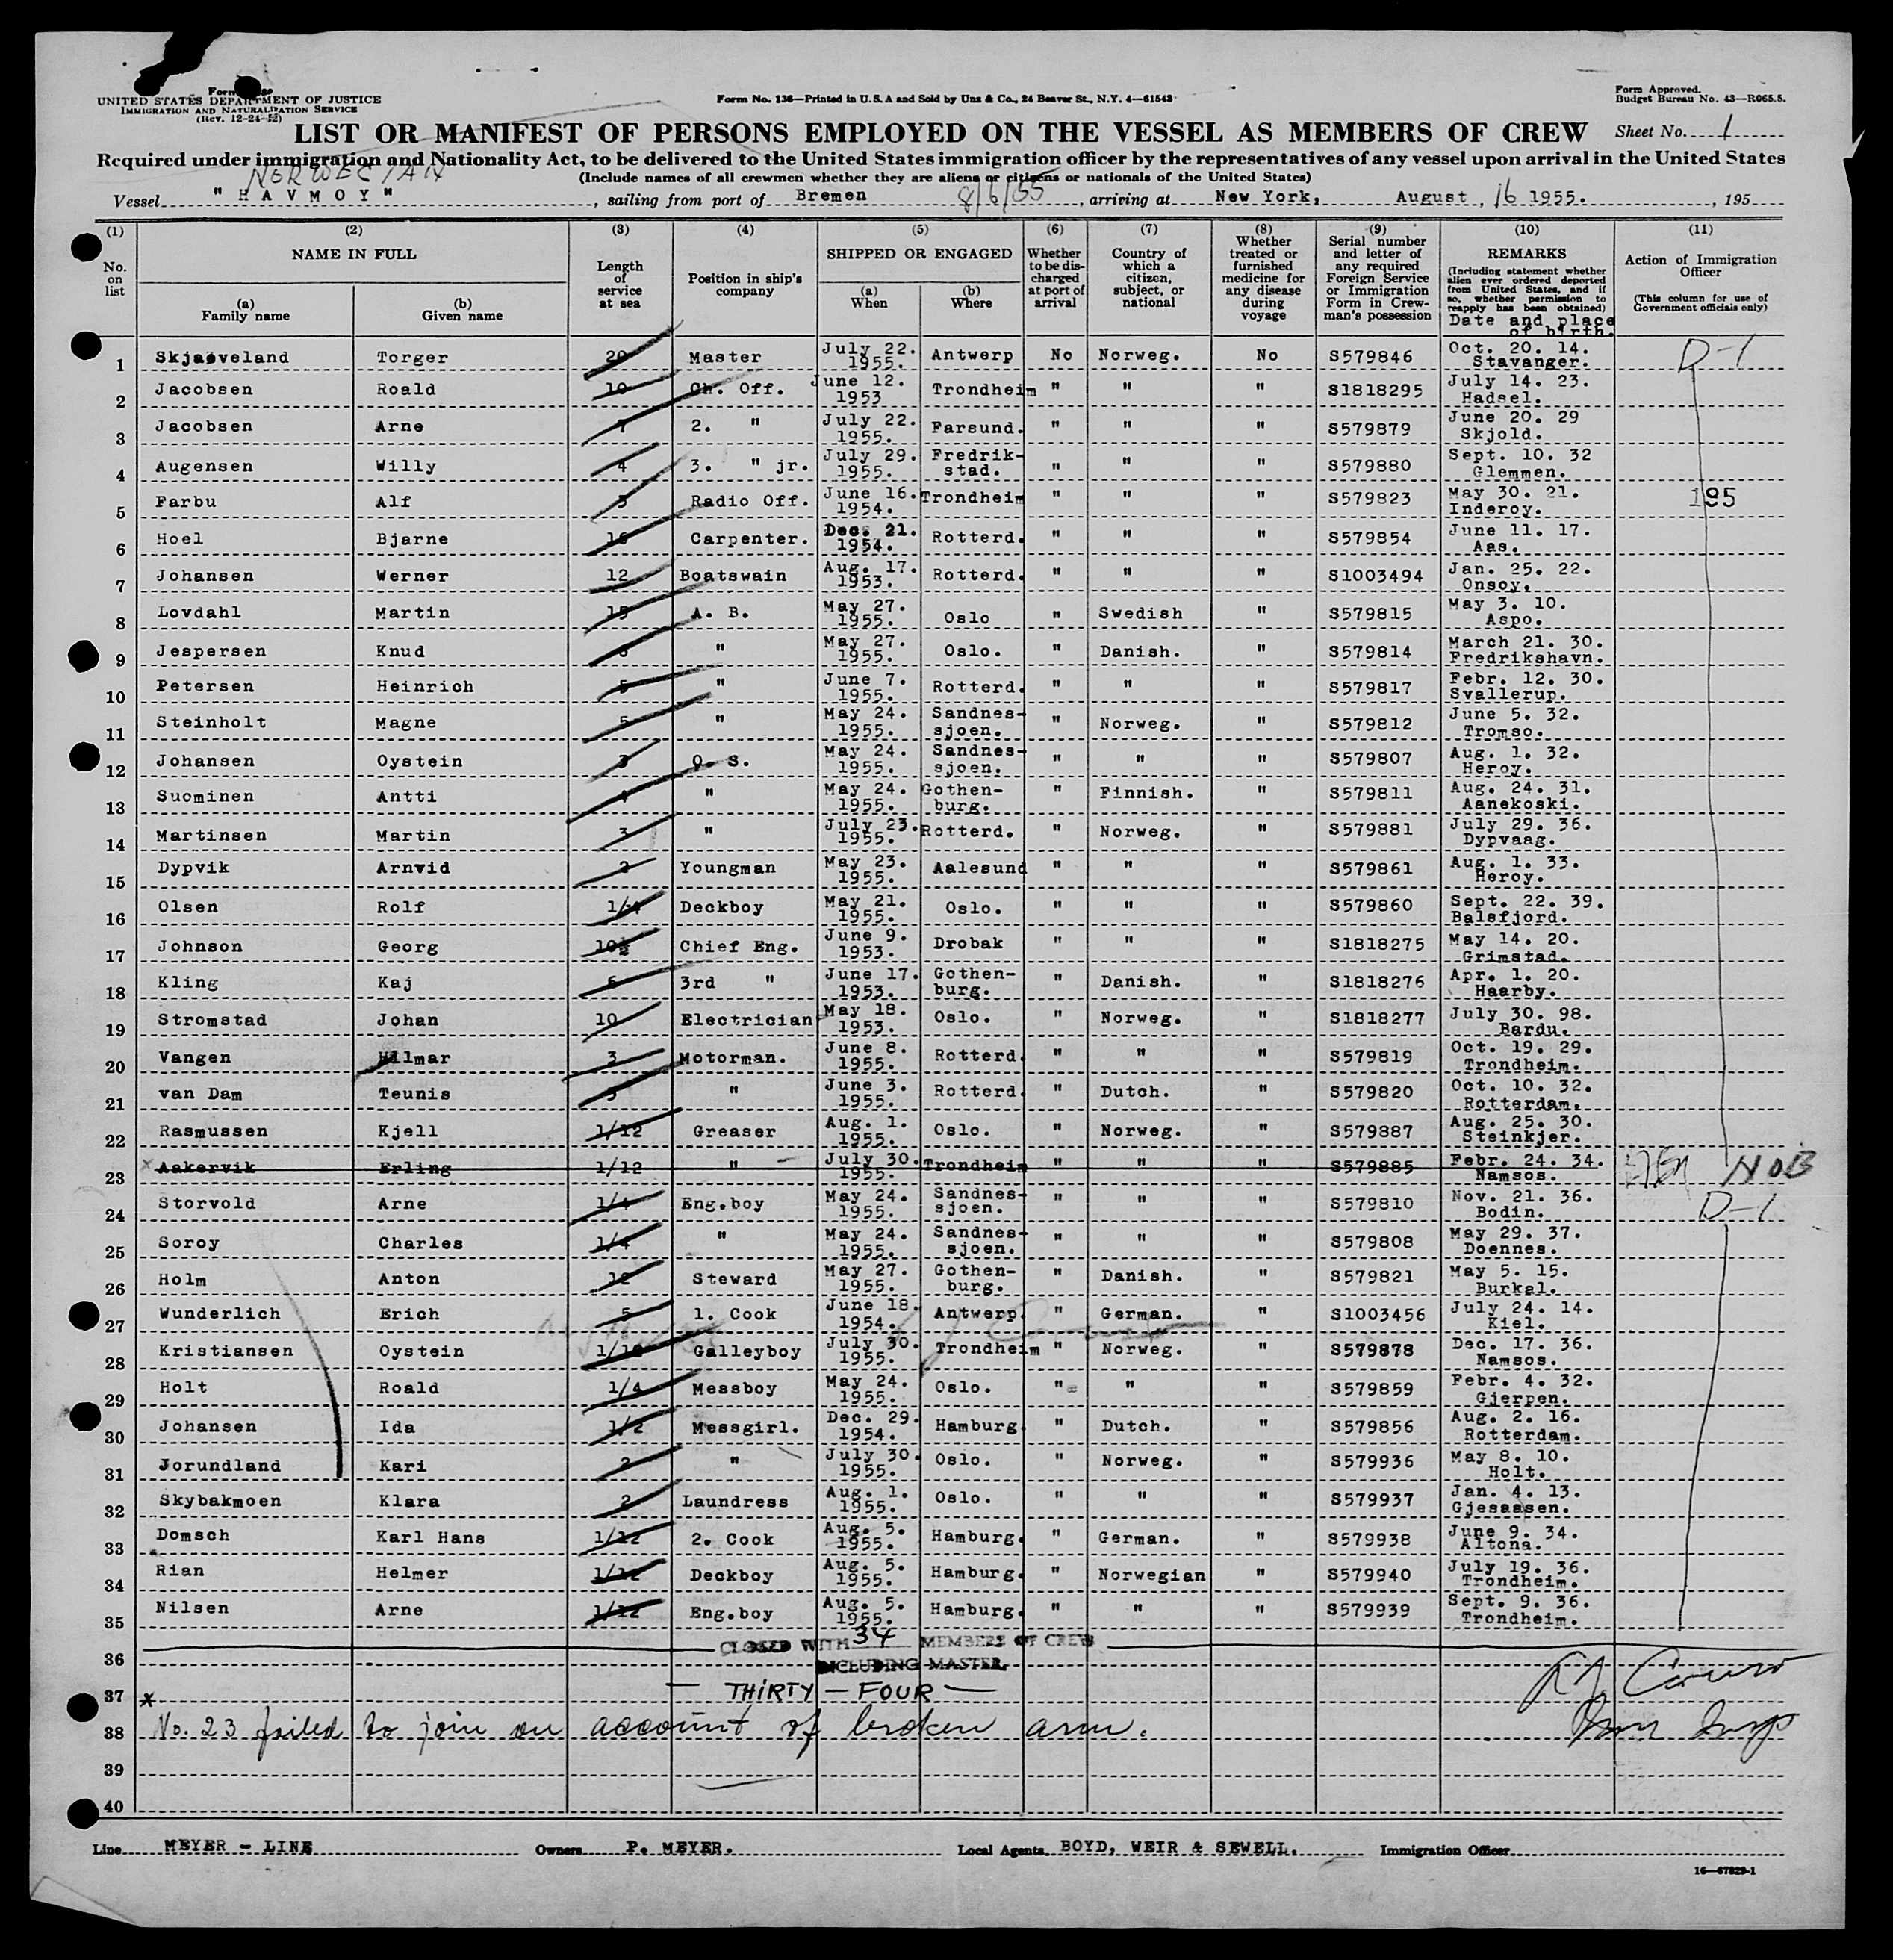 Form
UNITED STATES DEPARTMENT OF JUSTICE
IMMIGRATION AND NATURALIZATION SERVICE
(Rev. 12-24-52)
Form No. 136—Printed in U.S.A and Sold by Unz & Co., 24 Beaver St., N.Y. 4—61543
Form Approved.
Budget Bureau No. 43—R065.5.
LIST OR MANIFEST OF PERSONS EMPLOYED ON THE VESSEL AS MEMBERS OF CREW
Sheet No. 1
Required under immigration and Nationality Act, to be delivered to the United States immigration officer by the representatives of any vessel upon arrival in the United States
NORWEGIAN
(Include names of all crewmen whether they are aliens or citizens or nationals of the United States)
Vessel "HAVMOY", sailing from port of Bremen 8/6/55, arriving at New York, August, 16 1955., 195
(1) No. on list
(2) NAME IN FULL (a) Family name (b) Given name
(3) Length of service at sea
(4) Position in ship's company
(5) SHIPPED OR ENGAGED (a) When (b) Where
(6) Whether to be discharged at port of arrival
(7) Country of which a citizen, subject, or national
(8) Whether treated or furnished medicine for any disease during voyage
(9) Serial number and letter of any required Foreign Service or Immigration Form in Crewman's possession
(10) REMARKS (Including statement whether alien ever ordered deported from United States, and if so, whether permission to reapply has been obtained) Date and place of birth.
(11) Action of Immigration Officer (This column for use of Government officials only)
1 Skjaaveland Torger 20 Master July 22. 1955. Antwerp No Norweg. No S579846 Oct. 20. 14. Stavanger. D-1
2 Jacobsen Roald 10 Ch. Off. June 12. 1953 Trondheim " " " S1818295 July 14. 23. Hadsel.
3 Jacobsen Arne 7 2. " July 22. 1955. Farsund. " " " S579879 June 20. 29 Skjold.
4 Augensen Willy 4 3. " jr. July 29. 1955. Fredrikstad. " " " S579880 Sept. 10. 32 Glemmen.
5 Farbu Alf 5 Radio Off. June 16. 1954. Trondheim " " " S579823 May 30. 21. Inderoy. 195
6 Hoel Bjarne 16 Carpenter. Dec. 21. 1954. Rotterd. " " " S579854 June 11. 17. Aas.
7 Johansen Werner 12 Boatswain Aug. 17. 1953. Rotterd. " " " S1003494 Jan. 25. 22. Onsoy.
8 Lovdahl Martin 15 A. B. May 27. 1955. Oslo " Swedish " S579815 May 3. 10. Aspo.
9 Jespersen Knud " May 27. 1955. Oslo. " Danish. " S579814 March 21. 30. Fredrikshavn.
10 Petersen Heinrich 5 " June 7. 1955. Rotterd. " " " S579817 Febr. 12. 30. Svallerup.
11 Steinholt Magne 5 " May 24. 1955. Sandnes-sjoen. " Norweg. " S579812 June 5. 32. Tromso.
12 Johansen Oystein 3 O. S. May 24. 1955. Sandnes-sjoen. " " " S579807 Aug. 1. 32. Heroy.
13 Suominen Antti 4 " May 24. 1955. Gothen-burg. " Finnish. " S579811 Aug. 24. 31. Aanekoski.
14 Martinsen Martin 3 " July 23. 1955. Rotterd. " Norweg. " S579881 July 29. 36. Dypvaag.
15 Dypvik Arnvid 2 Youngman May 23. 1955. Aalesund " " " S579861 Aug. 1. 33. Heroy.
16 Olsen Rolf 1/4 Deckboy May 21. 1955. Oslo. " " " S579860 Sept. 22. 39. Balsfjord.
17 Johnson Georg 10½ Chief Eng. June 9. 1953. Drobak " " " S1818275 May 14. 20. Grimstad.
18 Kling Kaj 6 3rd " June 17. 1953. Gothen-burg. " Danish. " S1818276 Apr. 1. 20. Haarby.
19 Stromstad Johan 10 Electrician May 18. 1953. Oslo. " Norweg. " S1818277 July 30. 98. Bardu.
20 Vangen Hilmar 3 Motorman. June 8. 1955. Rotterd. " " " S579819 Oct. 19. 29. Trondheim.
21 van Dam Teunis 3 " June 3. 1955. Rotterd. " Dutch. " S579820 Oct. 10. 32. Rotterdam.
22 Rasmussen Kjell 1/12 Greaser Aug. 1. 1955. Oslo. " Norweg. " S579887 Aug. 25. 30. Steinkjer.
23 x Aakervik Erling 1/12 " July 30. 1955. Trondheim " " " S579885 Febr. 24. 34. Namsos. NOB
24 Storvold Arne 1/4 Eng.boy May 24. 1955. Sandnes-sjoen. " " " S579810 Nov. 21. 36. Bodin. D-1
25 Soroy Charles 1/4 " May 24. 1955. Sandnes-sjoen. " " " S579808 May 29. 37. Doennes.
26 Holm Anton 12 Steward May 27. 1955. Gothen-burg. " Danish. " S579821 May 5. 15. Burkal.
27 Wunderlich Erich 5 1. Cook June 18. 1954. Antwerp. " German. " S1003456 July 24. 14. Kiel.
28 Kristiansen Oystein 1/12 Galleyboy July 30. 1955. Trondheim " Norweg. " S579878 Dec. 17. 36. Namsos.
29 Holt Roald 1/4 Messboy May 24. 1955. Oslo. " " " S579859 Febr. 4. 32. Gjerpen.
30 Johansen Ida 1/2 Messgirl. Dec. 29. 1954. Hamburg. " Dutch. " S579856 Aug. 2. 16. Rotterdam.
31 Jorundland Kari 2 " July 30. 1955. Oslo. " Norweg. " S579936 May 8. 10. Holt.
32 Skybakmoen Klara 2 Laundress Aug. 1. 1955. Oslo. " " " S579937 Jan. 4. 13. Gjesaasen.
33 Domsch Karl Hans 1/12 2. Cook Aug. 5. 1955. Hamburg. " German. " S579938 June 9. 34. Altona.
34 Rian Helmer 1/12 Deckboy Aug. 5. 1955. Hamburg. " Norwegian " S579940 July 19. 36. Trondheim.
35 Nilsen Arne 1/12 Eng.boy Aug. 5. 1955. Hamburg. " " " S579939 Sept. 9. 36. Trondheim.
CLOSED WITH 34 MEMBERS OF CREW
36 INCLUDING MASTER
37 x — THIRTY — FOUR —
38 No. 23 failed to join on account of broken arm.
39
40
Line MEYER - LINE Owners P. MEYER. Local Agents BOYD, WEIR & SEWELL. Immigration Officer
16—67829-1